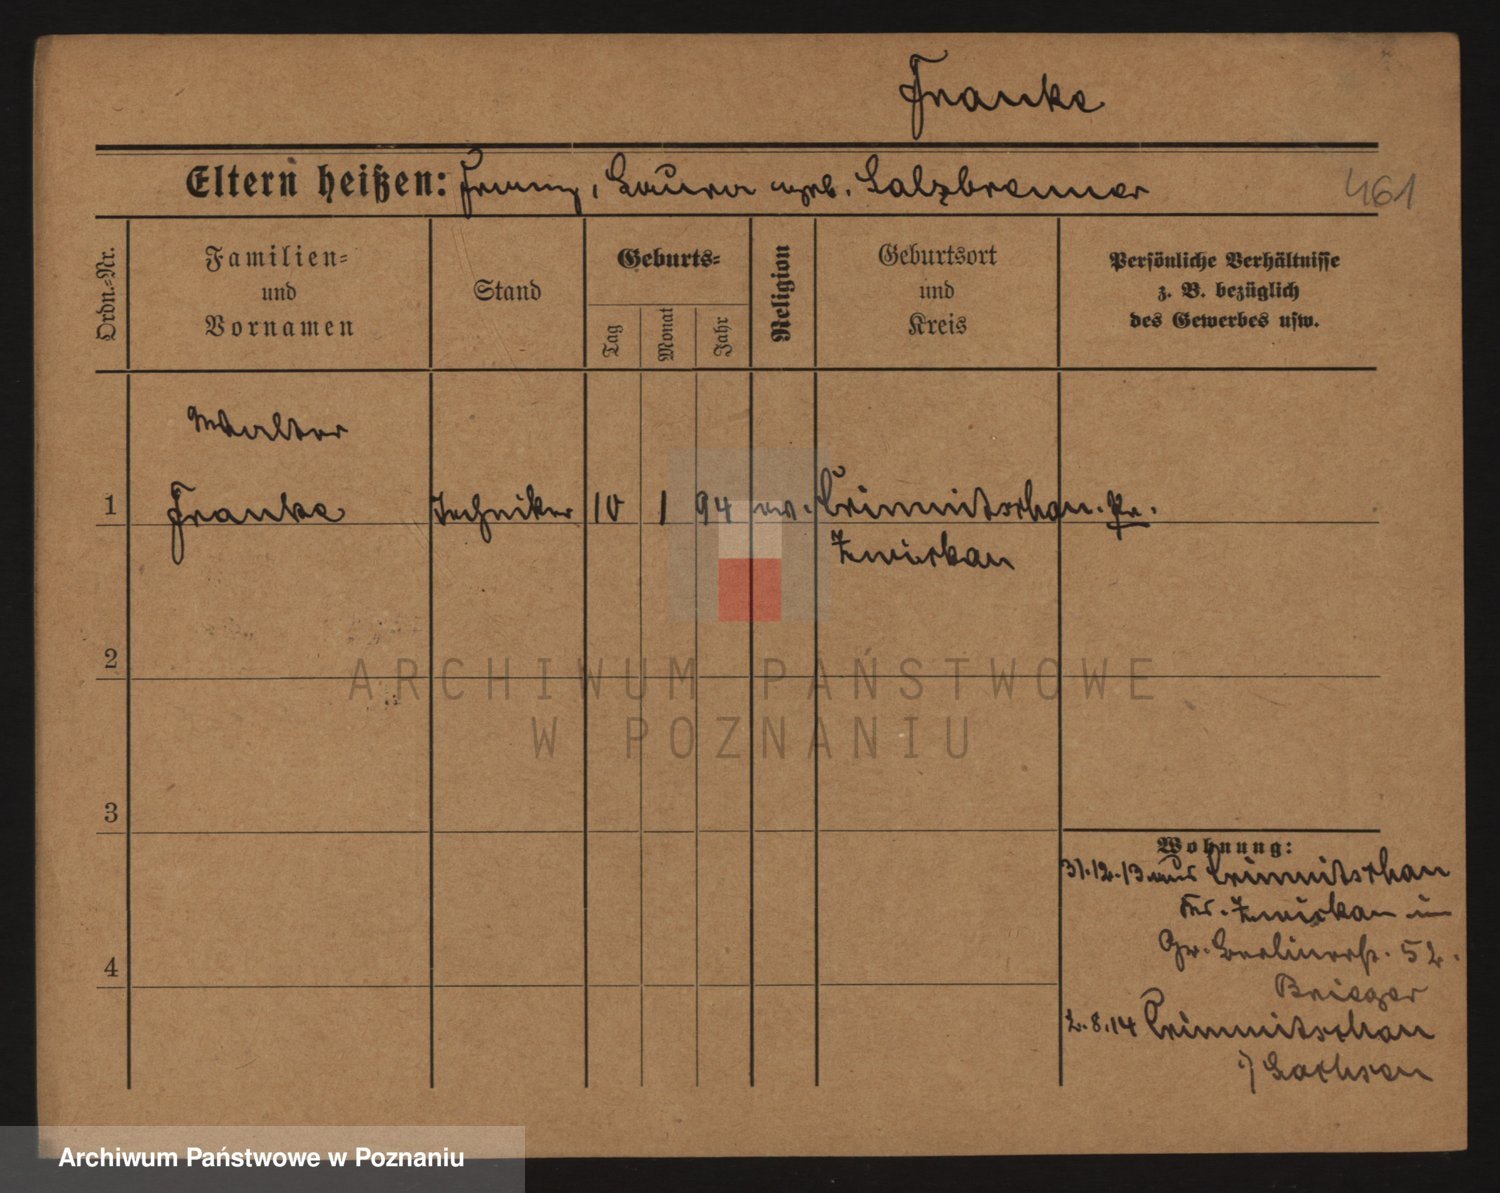 Franke
Eltern heißen: Franz, Laura geb. Salzbrenner
461
Ordn.-Nr.
Familien-
und
Vornamen
Stand
Geburts-
Tag
Monat
Jahr
Religion
Geburtsort
und
Kreis
Persönliche Verhältnisse
z. B. bezüglich
des Gewerbes usw.
Walter
1 Franke Techniker 10 1 94 ev. Crimmitschau. Pr.
Zwickau
2
3
4
Wohnung:
31.12.13 aus Crimmitschau
Kr. Zwickau in
Gr. Berlinerstr. 52.
Brieger
2.8.14 Crimmitschau
i/ Sachsen
ARCHIWUM PAŃSTWOWE
W POZNANIU
Archiwum Państwowe w Poznaniu